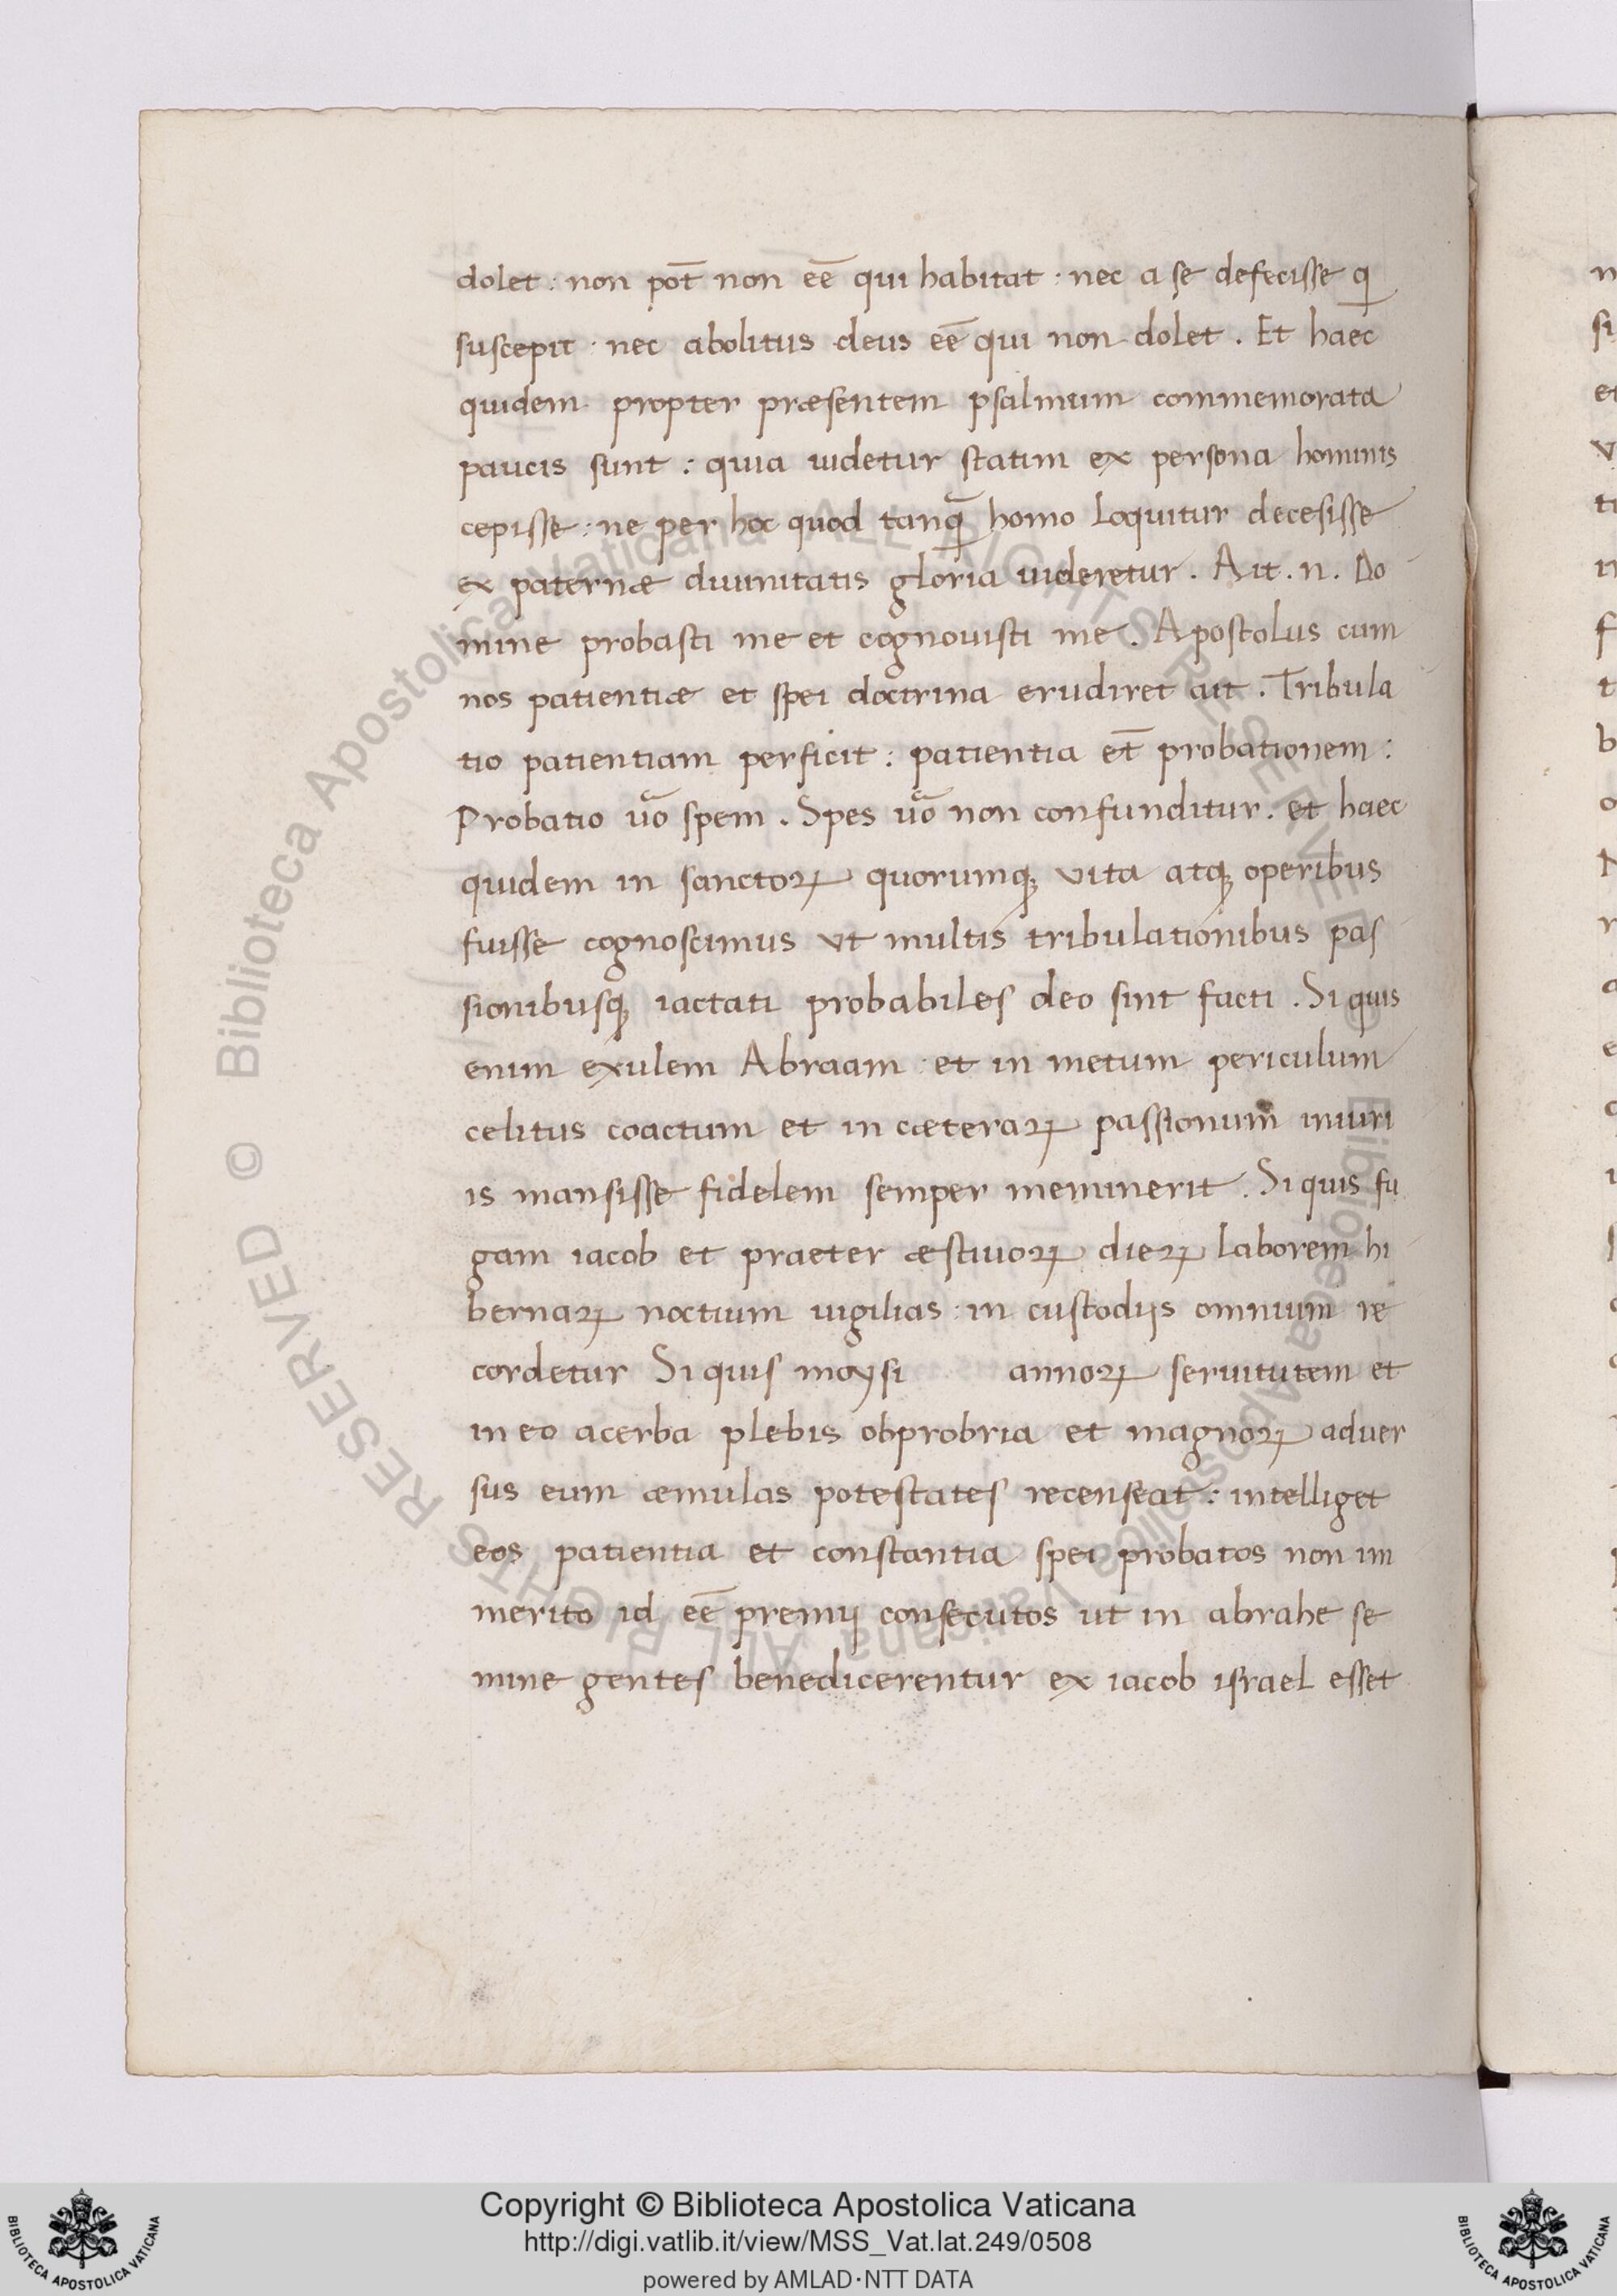 dolet : non pot̄ non eē qui habitat : nec a se defecisse q
suscepit · nec abolitus deus eē qui non dolet . Et haec
quidem propter præsentem psalmum commemorata
paucis sunt : quia uidetur statim ex persona hominis
cepisse : ne per hoc quod tanq̃ homo loquitur decesisse
ex paternæ diuinitatis gloria uideretur . Ait . n . Do
mine probasti me et cognouisti me . Apostolus cum
nos patientiæ et spei doctrina erudiret ait . Tribula
tio patientiam perficit : patientia et̄ probationem :
Probatio uoᷓ spem . Spes uoᷓ non confunditur . et haec
quidem in sanctoꝝ quorumqꝫ vita atqꝫ operibus
fuisse cognoscimus vt multis tribulationibus pas
sionibusqꝫ iactati probabiles deo sint facti . Si quis
enim exulem Abraam · et in metum periculum
celitus coactum et in cæteraꝝ passionum iniuri
is mansisse fidelem semper meminerit . Si quis fu
gam iacob et praeter æstiuoꝝ dieꝝ laborem hi
bernaꝝ noctium uigilias · in custodijs omnium re
cordetur Si quis moysi annoꝝ seruitutem et
in eo acerba plebis obprobria et magnoꝝ aduer
sus eum æmulas potestates recenseat : intelliget
eos patientia et constantia spei probatos non im
merito id eē premij consecutos ut in abrahe se
mine gentes benedicerentur ex iacob israel esset
© Biblioteca Apostolica Vaticana ALL RIGHTS RESERVED © Biblioteca Apostolica Vaticana ALL RIGHTS RESERVED
Copyright © Biblioteca Apostolica Vaticana
http://digi.vatlib.it/view/MSS_Vat.lat.249/0508
powered by AMLAD·NTT DATA
BIBLIOTECA APOSTOLICA VATICANA
BIBLIOTECA APOSTOLICA VATICANA